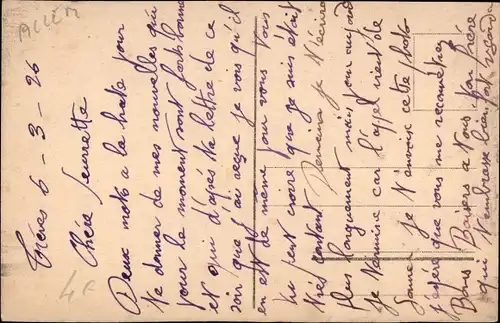 ALLEM
4€
Trèves 6-3-26
Chère Seurette
Deux mots a la hate pour
te donner de mes nouvelles qui
pour le moment sont fort bonne
et qui d'après ta lettre de ce
soir que j'ai reçue je vous qu'il
en est de même pour vous tous
tu peut croire que je suis était
très contant Demain je t'écrirai
Plus longuement mais pour aujourd
Je termine car l'appel vient de
sonner Je t'envoie cette photo
J'éspère que vous me reconnêtrez
Bons Baisers a tous ton frère
qui t'embrasse bien fort